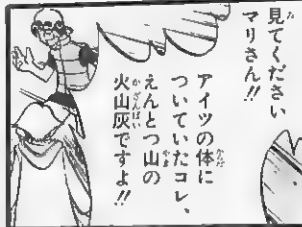 見てください
マリさん!!
アイツの体に
ついていたコレ、
えんとつ山の
火山灰ですよ!!